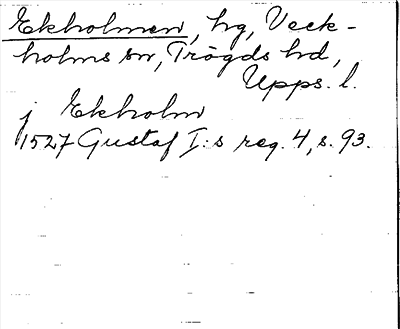 Ekholmen, hg, Veck-
holms sn, Trögds hd,
Upps. l.
j Ekholm
1527 Gustaf I:s reg. 4, s. 93.